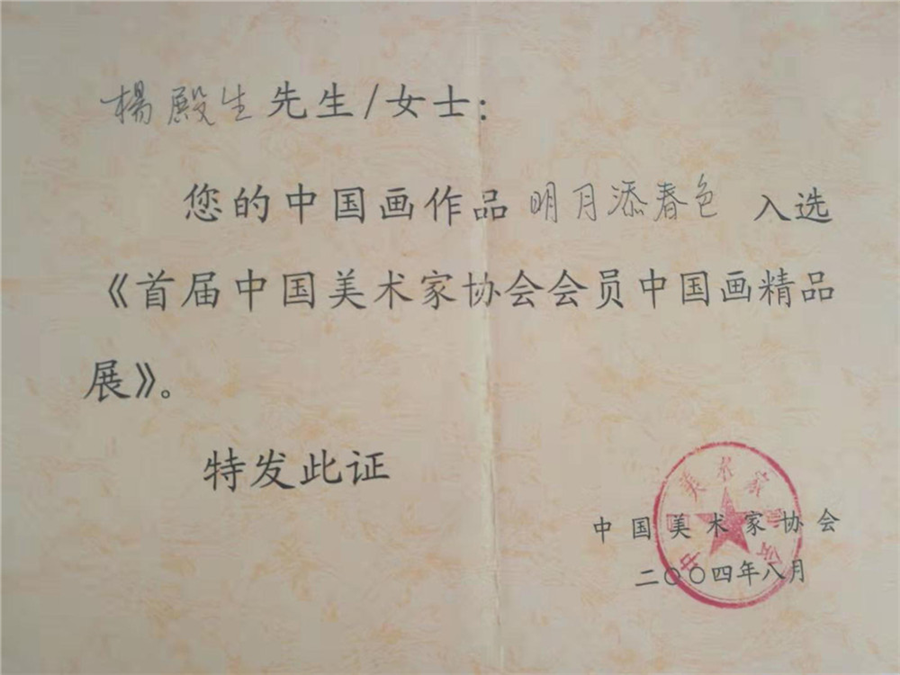 楊殿生先生/女士:
您的中国画作品 明月添春色 入选
《首届中国美术家协会会员中国画精品
展》。
特发此证
中国美术家协会
二〇〇四年八月
中国美术家协会